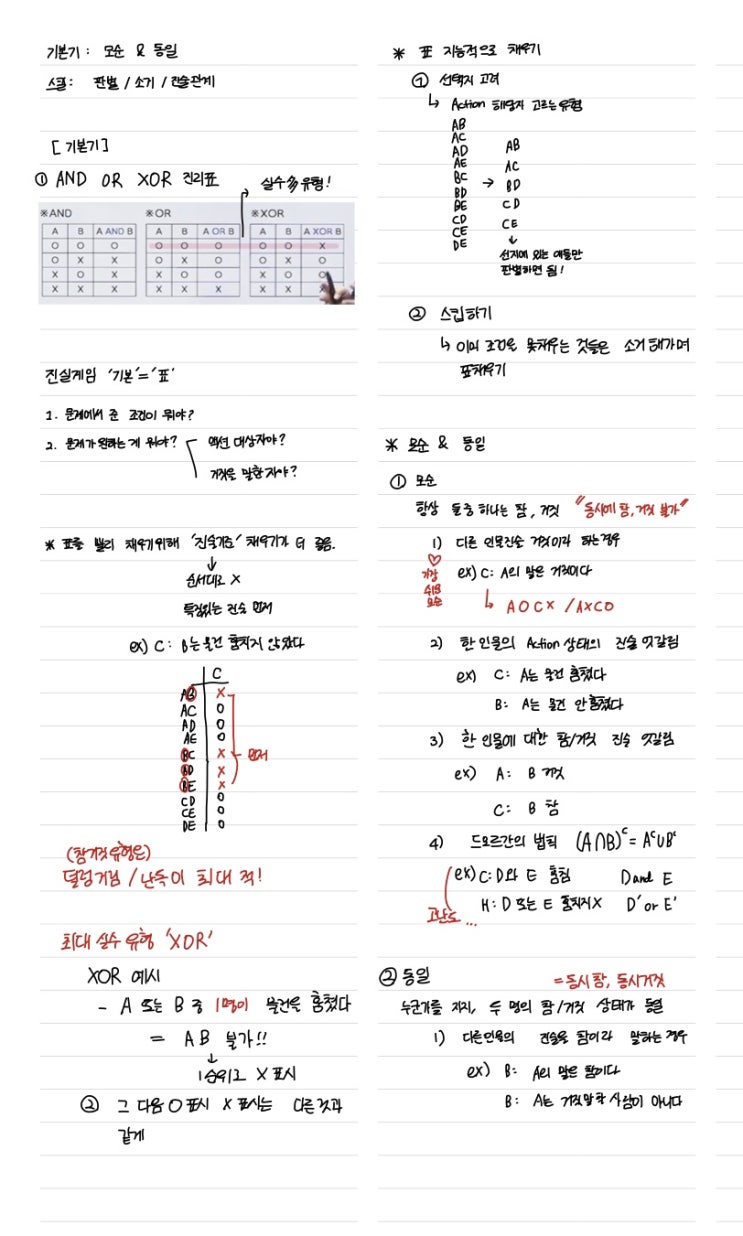 기본기 : 모순 & 동일
스킬 : 판별 / 소거 / 진술관계
[기본기]
① AND OR XOR 진리표
실수多 유형!
※AND
A B A AND B
O O O
O X X
X O X
X X X
※OR
A B A OR B
O O O
O X O
X O O
X X X
※XOR
A B A XOR B
O O X
O X O
X O O
X X X
진실게임 '기본' = '표'
1. 문제에서 준 조건이 뭐야?
2. 문제가 원하는 게 뭐야?
액션 대상자야?
거짓을 말한 자야?
* 표를 빨리 채우기위해 '진술기준' 채우기가 더 좋음.
↓
순서대로 X
특징있는 진술 먼저
ex) C : B는 물건 훔치지 않았다
C
AB X
AC O
AD O
AE O
BC X
BD X
BE X
CD O
CE O
DE O
먼저
(참거짓유형은)
덜렁거림 / 난독이 최대 적!
최대 실수 유형 'XOR'
XOR 예시
- A 또는 B 중 1명이 물건을 훔쳤다
= AB 불가!!
↓
1순위로 X 표시
② 그 다음 O 표시 X 표시는 다른것과
같게
* 표 지능적으로 채우기
① 선택지 고려
↳ Action 해당자 고르는 유형
AB
AC
AD
AE
BC
BD
BE
CD
CE
DE
→
AB
AC
BD
CD
CE
↓
선지에 있는 애들만
판별하면 됨!
② 스킵하기
↳ 이미 조건을 못채우는 것들은 소거 해가며
표채우기
* 모순 & 동일
① 모순
항상 둘중 하나는 참, 거짓 "동시에 참, 거짓 불가"
1) 다른 인물진술 거짓이라 하는경우
♡
가장
쉬운
모순
ex) C : A의 말은 거짓이다
↳ A O C X / A X C O
2) 한 인물의 Action 상태의 진술 엇갈림
ex) C : A는 물건 훔쳤다
B : A는 물건 안훔쳤다
3) 한 인물에 대한 참/거짓 진술 엇갈림
ex) A : B 거짓
C : B 참
4) 드모르간의 법칙 (A∩B)ᶜ = Aᶜ∪Bᶜ
ex) C : D와 E 훔침 D and E
H : D 또는 E 훔치지X D' or E'
고난도...
② 동일 = 동시 참, 동시거짓
누군가를 지지, 두 명의 참/거짓 상태가 동일
1) 다른인물의 진술을 참이라 말하는 경우
ex) B : A의 말은 참이다
B : A는 거짓말한 사람이 아니다